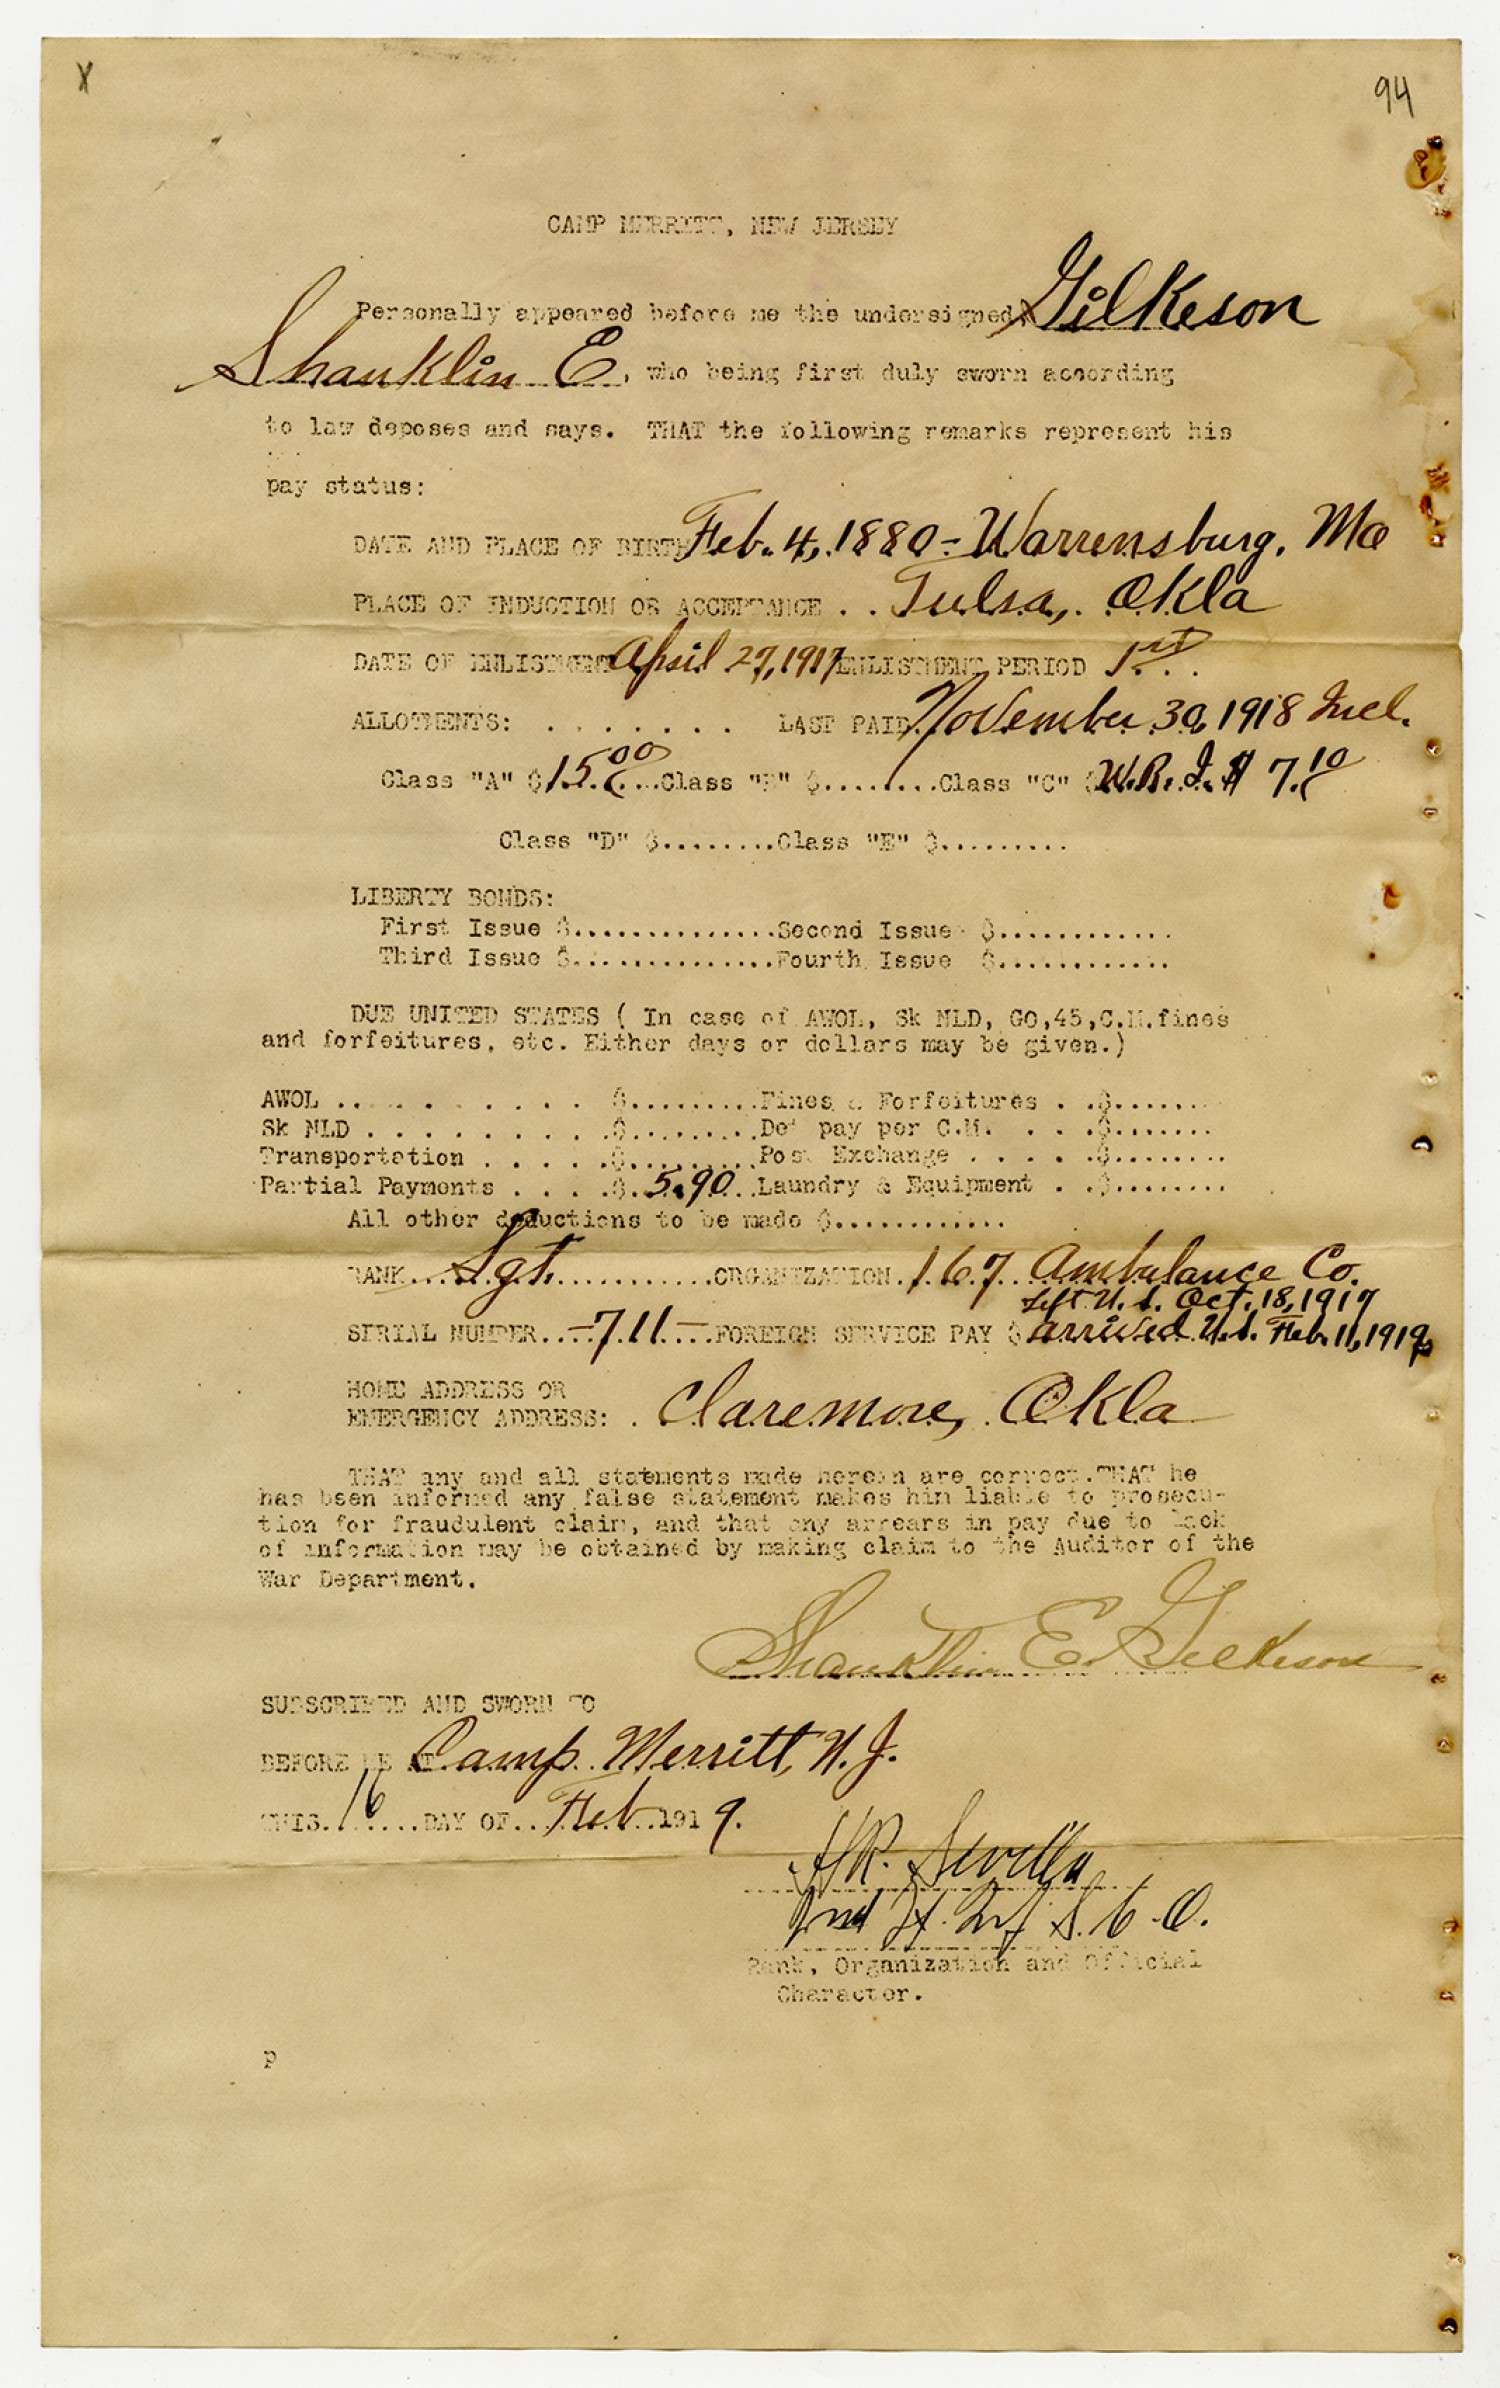 X
94
CAMP MERRITT, NEW JERSEY
Personally appeared before me the undersigned, Gilkeson
Shanklin E., who being first duly sworn according
to law deposes and says. THAT the following remarks represent his
pay status:
DATE AND PLACE OF BIRTH Feb. 4, 1880 - Warrensburg, Mo
PLACE OF INDUCTION OR ACCEPTANCE . . Tulsa, Okla
DATE OF ENLISTMENT April 27, 1917 ENLISTMENT PERIOD 1st . .
ALLOTMENTS: . . . . . . . LAST PAID November 30, 1918 Incl.
Class "A" $15.00 ...Class "B" $........Class "C" $ W.R.I. $ 7.10
Class "D" $........Class "E" $.........
LIBERTY BONDS:
First Issue $..............Second Issue $............
Third Issue $..............Fourth Issue $............
DUE UNITED STATES ( In case of AWOL, Sk NLD, GO,45,C.M.fines
and forfeitures, etc. Either days or dollars may be given.)
AWOL . . . . . . . . . . $.........Fines & Forfeitures . .$........
Sk NLD . . . . . . . . . .$.........Det pay per C.M. . . . .$.......
Transportation . . . . . .$.........Post Exchange . . . . . .$........
Partial Payments . . . . .$..5.90..Laundry & Equipment . .$........
All other deductions to be made $............
RANK....Sgt............ORGANIZATION.167 Ambulance Co.
Left U.S. Oct. 18, 1917
SERIAL NUMBER...-711-...FOREIGN SERVICE PAY $ arrived U.S. Feb. 11, 1919
HOME ADDRESS OR
EMERGENCY ADDRESS: . Claremore, Okla
THAT any and all statements made herein are correct.THAT he
has been informed any false statement makes him liable to prosecu-
tion for fraudulent claim, and that any arrears in pay due to lack
of information may be obtained by making claim to the Auditor of the
War Department.
Shanklin E. Gilkeson
SUBSCRIBED AND SWORN TO
BEFORE ME AT Camp Merritt, N.J.
THIS..16....DAY OF...Feb..1919.
Rank, Organization and Official
Character.
p